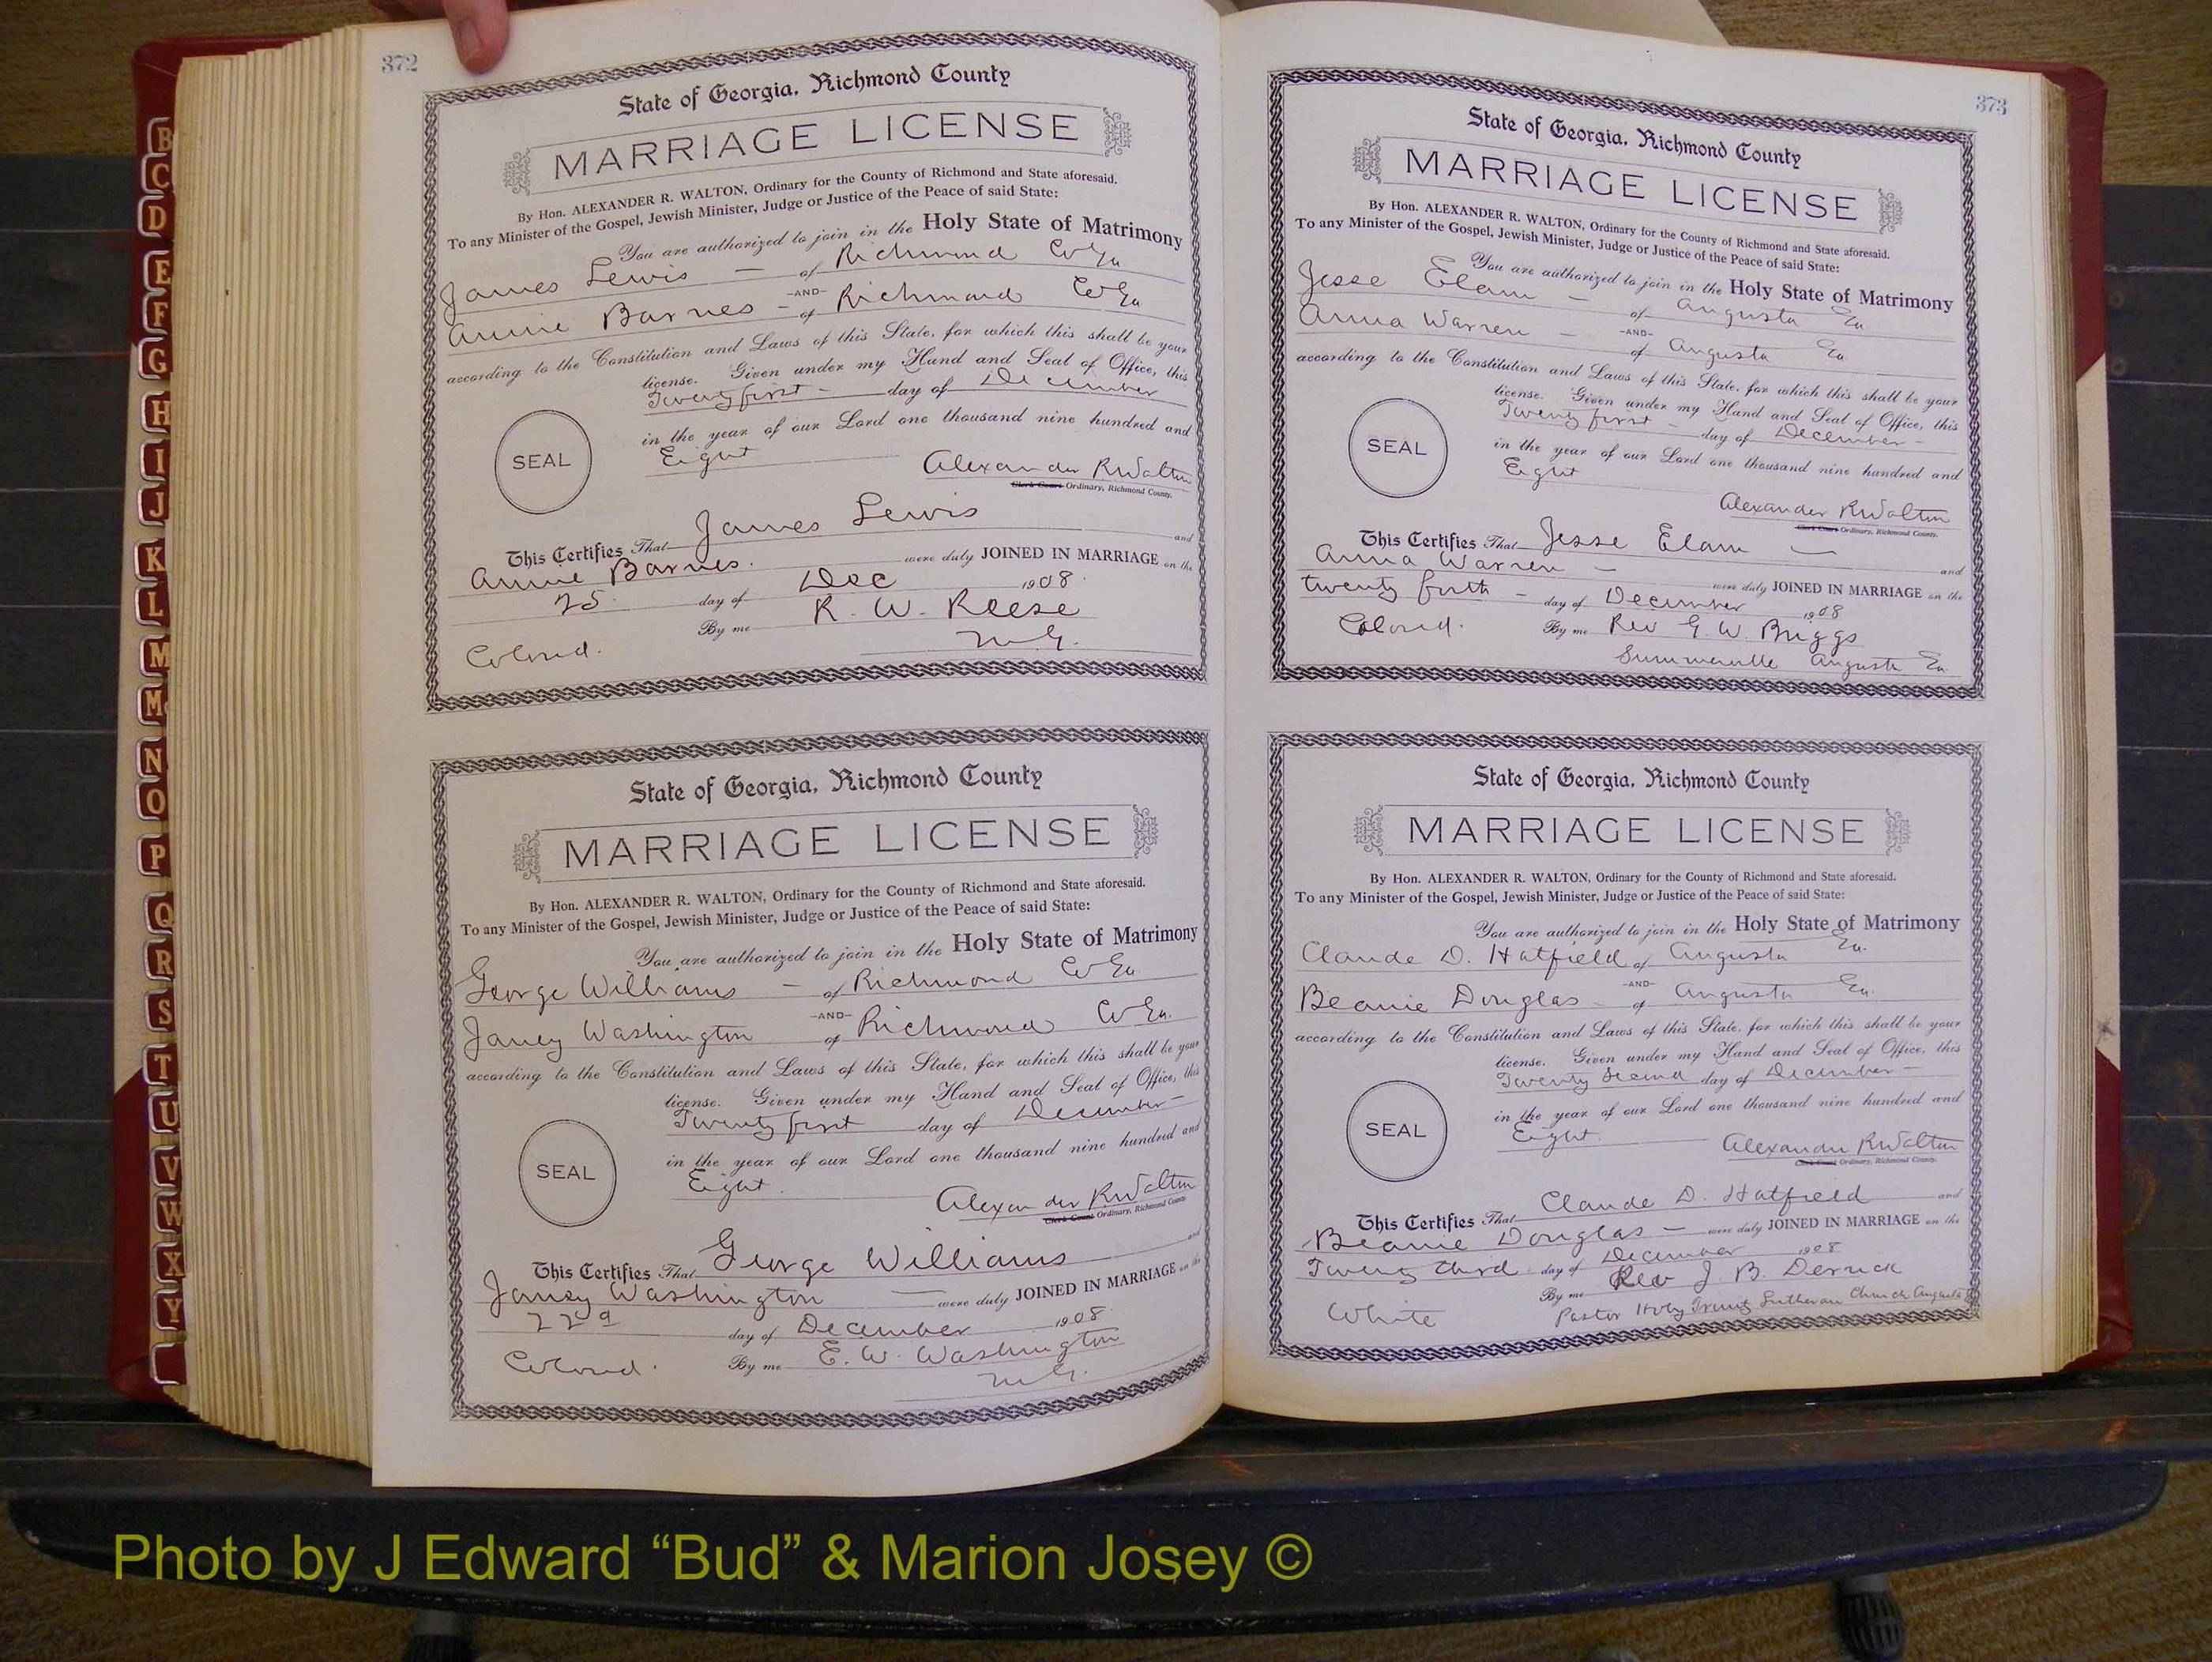 372
State of Georgia, Richmond County
MARRIAGE LICENSE
By Hon. ALEXANDER R. WALTON, Ordinary for the County of Richmond and State aforesaid.
To any Minister of the Gospel, Jewish Minister, Judge or Justice of the Peace of said State:
You are authorized to join in the Holy State of Matrimony
James Lewis — of Richmond Co Ga
-AND-
Annie Barnes - of Richmond Co Ga
according to the Constitution and Laws of this State, for which this shall be your
license. Given under my Hand and Seal of Office, this
Twenty first - day of December
in the year of our Lord one thousand nine hundred and
Eight
SEAL
Alexander R Walton
Clerk Court Ordinary, Richmond County.
This Certifies That James Lewis and
Annie Barnes. were duly JOINED IN MARRIAGE on the
25 day of Dec 1908
By me R. W. Reese
Colored. M.G.
State of Georgia, Richmond County
MARRIAGE LICENSE
By Hon. ALEXANDER R. WALTON, Ordinary for the County of Richmond and State aforesaid.
To any Minister of the Gospel, Jewish Minister, Judge or Justice of the Peace of said State:
You are authorized to join in the Holy State of Matrimony
George Williams — of Richmond Co Ga.
-AND-
Janey Washington of Richmond Co Ga.
according to the Constitution and Laws of this State, for which this shall be your
license. Given under my Hand and Seal of Office, this
Twenty first day of December -
in the year of our Lord one thousand nine hundred and
Eight.
SEAL
Alexander R Walton
Clerk Court Ordinary, Richmond County
This Certifies That George Williams and
Janey Washington — were duly JOINED IN MARRIAGE on the
22d day of December 1908
Colored. By me E. W. Washington
M.G.
373
State of Georgia, Richmond County
MARRIAGE LICENSE
By Hon. ALEXANDER R. WALTON, Ordinary for the County of Richmond and State aforesaid.
To any Minister of the Gospel, Jewish Minister, Judge or Justice of the Peace of said State:
You are authorized to join in the Holy State of Matrimony
Jesse Elam — of Augusta Ga
-AND-
Anna Warren — of Augusta Ga
according to the Constitution and Laws of this State, for which this shall be your
license. Given under my Hand and Seal of Office, this
Twenty first - day of December -
in the year of our Lord one thousand nine hundred and
Eight
SEAL
Alexander R Walton
Clerk Court Ordinary, Richmond County.
This Certifies That Jesse Elam — and
Anna Warren — were duly JOINED IN MARRIAGE on the
twenty forth - day of December 1908
Colored. By me Rev G. W. Briggs
Summerville Augusta Ga.
State of Georgia, Richmond County
MARRIAGE LICENSE
By Hon. ALEXANDER R. WALTON, Ordinary for the County of Richmond and State aforesaid.
To any Minister of the Gospel, Jewish Minister, Judge or Justice of the Peace of said State:
You are authorized to join in the Holy State of Matrimony
Claude D. Hatfield of Augusta Ga.
-AND-
Beanie Douglas - of Augusta Ga.
according to the Constitution and Laws of this State, for which this shall be your
license. Given under my Hand and Seal of Office, this
Twenty second day of December -
in the year of our Lord one thousand nine hundred and
Eight.
SEAL
Alexander R Walton
Clerk Court Ordinary, Richmond County.
This Certifies That Claude D. Hatfield and
Beanie Douglas — were duly JOINED IN MARRIAGE on the
Twenty third day of December 1908
By me Rev J. B. Derrick
White Pastor Holy Trinity Lutheran Church Augusta
B
C
D
E
F
G
H
I
J
K
L
M
Mc
N
O
P
Q
R
S
T
U
V
W
X
Y
Photo by J Edward “Bud” & Marion Josey ©